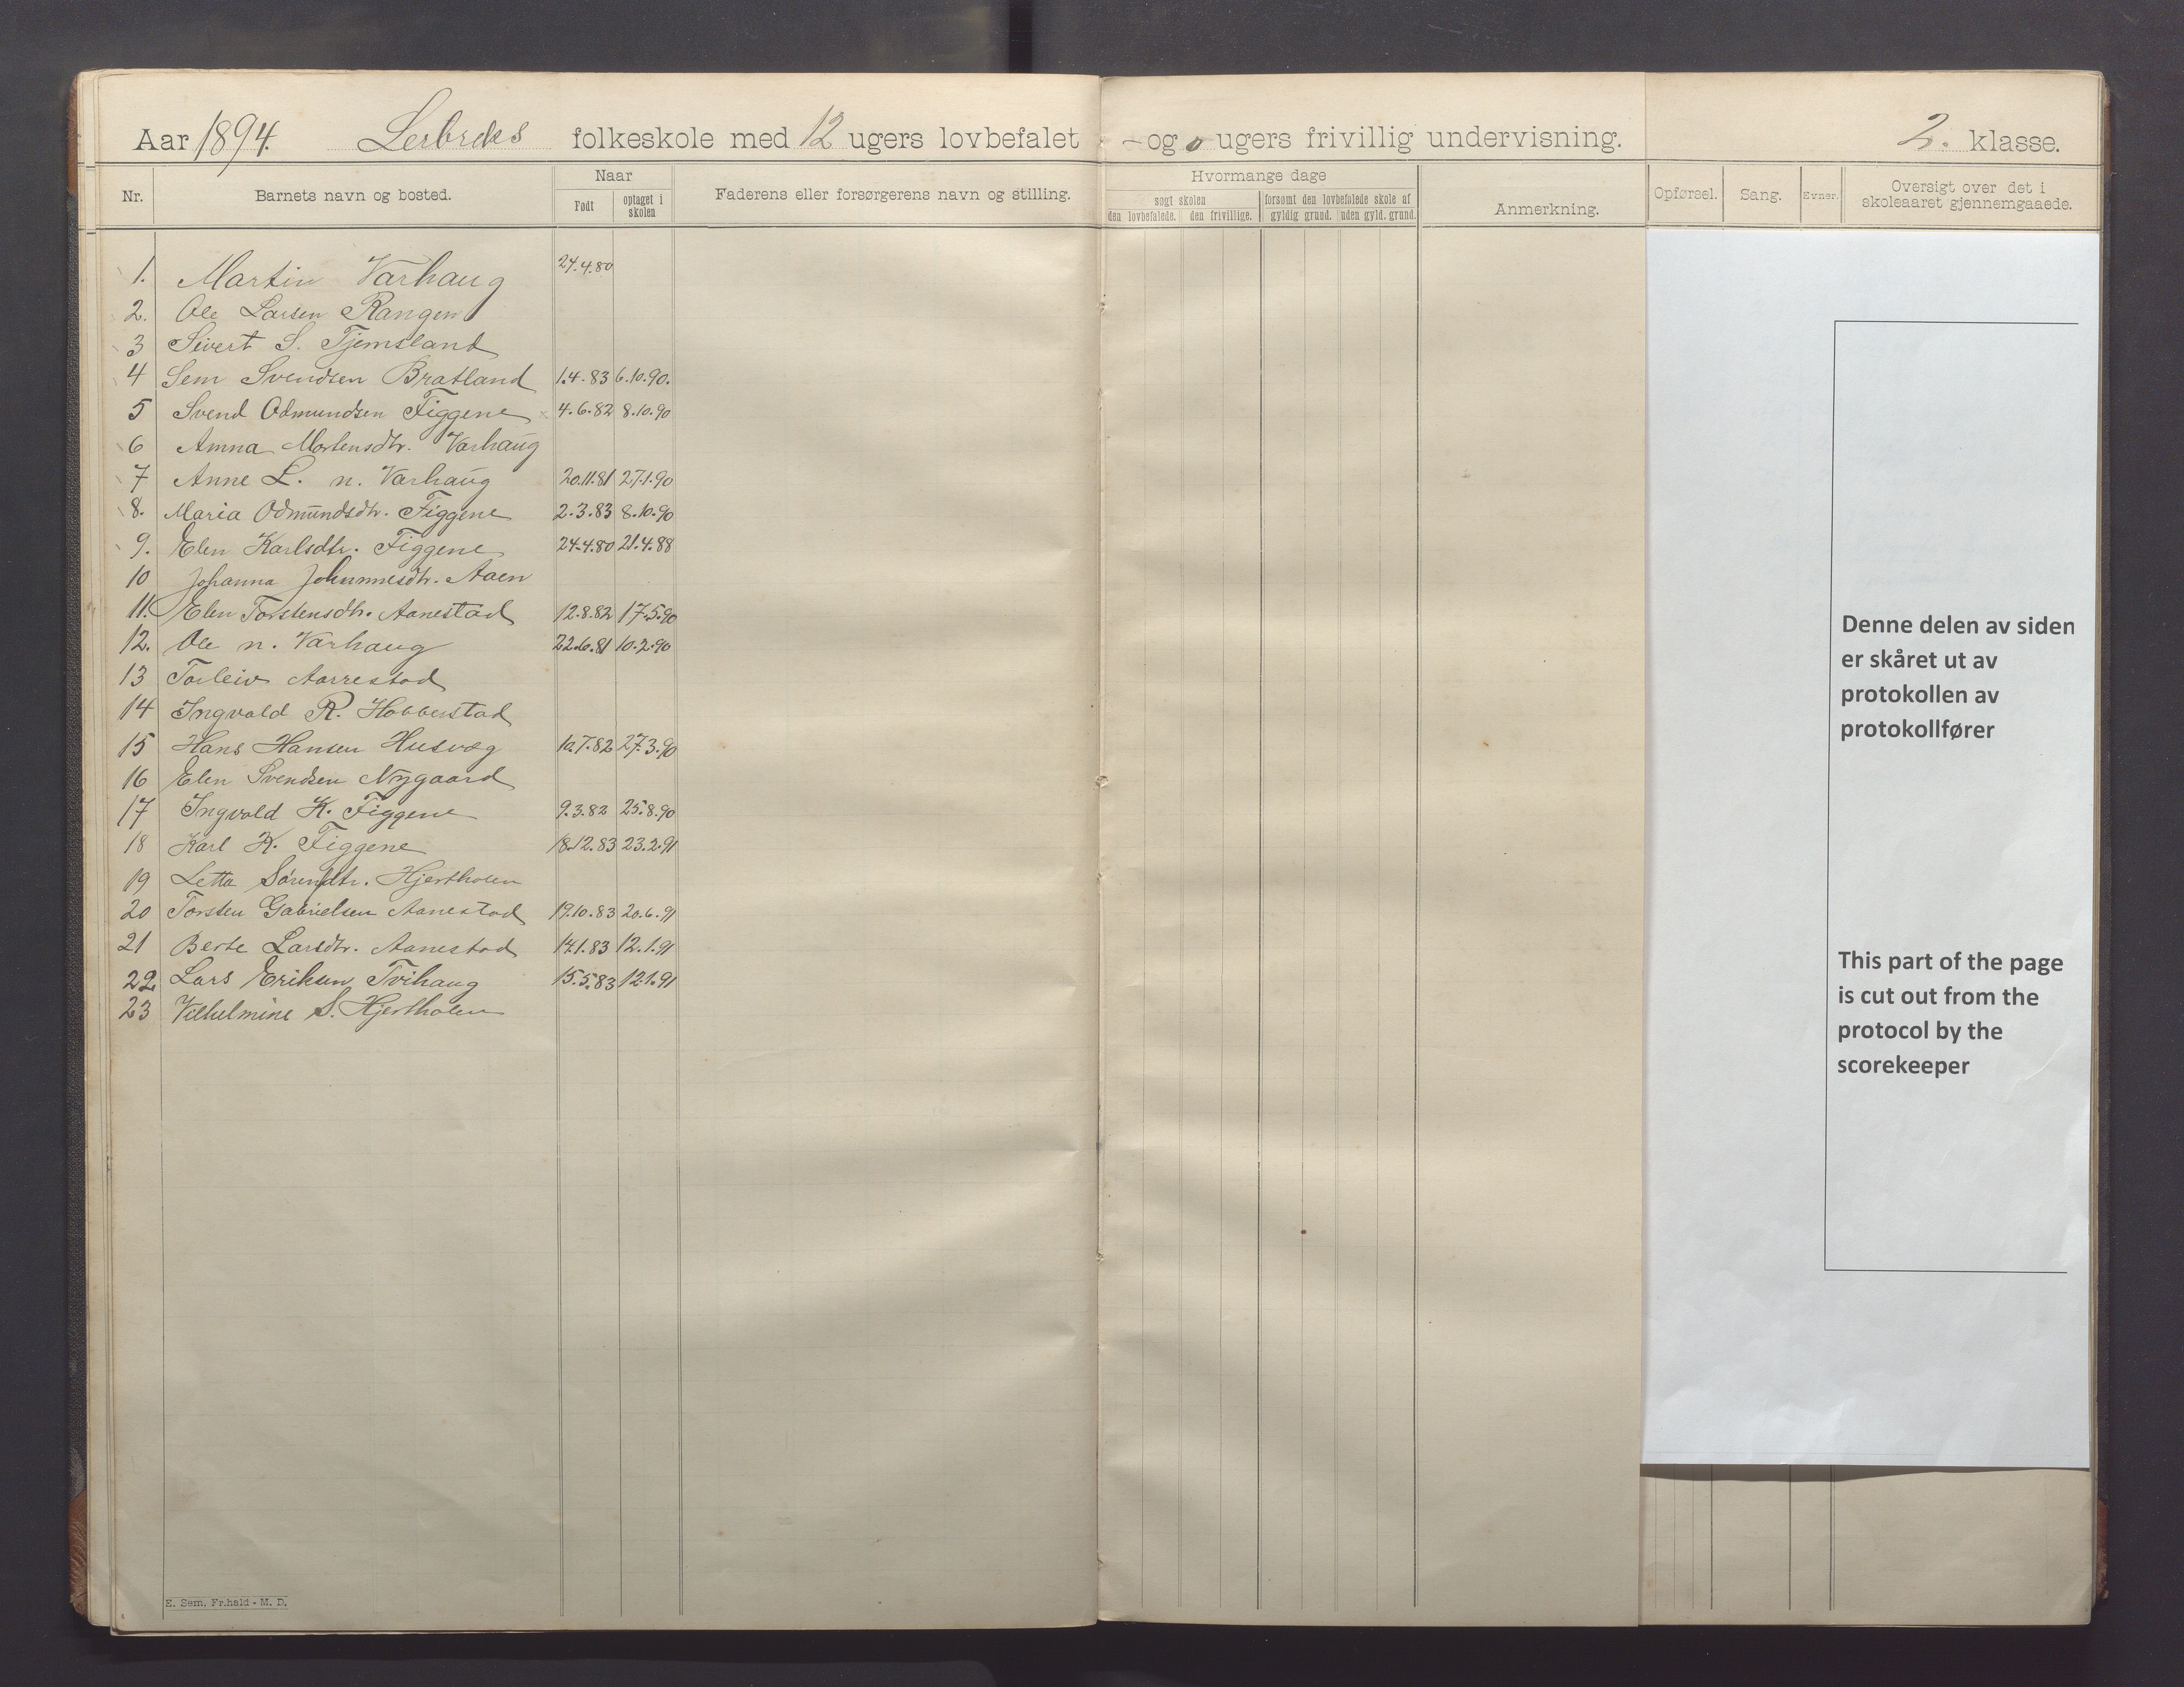 Aar 1894. Lerbreks folkeskole med 12 ugers lovbefalet - og 0 ugers frivillig undervisning. 2. klasse.
Nr. Barnets navn og bosted. Naar Født optaget i skolen Faderens eller forsørgerens navn og stilling. Hvormange dage søgt skolen den lovbefalede. den frivillige. forsømt den lovbefalede skole af gyldig grund. uden gyld. grund. Anmerkning. Opførsel. Sang. Evner. Oversigt over det i skoleaaret gjennemgaaede.
1. Martin Varhaug 24.4.80
2. Ole Larsen Rangen
3 Sivert S. Tjemsland
4 Sem Svendsen Bratland 1.4.83 6.10.90.
5 Svend Odmundsen Figgene 4.6.82 8.10.90
6 Amna Mortensdtr. Varhaug
7 Anne L. n. Varhaug 20.11.81 27.1.90
8. Maria Odmundsdtr. Figgene 2.3.83 8.10.90
9. Elen Karlsdtr. Figgene 24.4.80 21.4.88
10 Johanna Johannesdtr. Aaen
11. Elen Torstensdtr. Aanestad 12.8.82 17.5.90
12. Ole n. Varhaug 22.6.81 10.2.90
13 Torleiv Aarrestad
14 Ingvald R. Hobberstad
15 Hans Hansen Husvæg 10.7.82 27.3.90
16 Elen Svendsen Nygaard
17 Ingvald K. Figgene 9.3.82 25.8.90
18 Karl K. Figgene 18.12.83 23.2.91
19 Letta Sørensdtr. Hjertholen
20 Torsten Gabrielsen Aanestad 19.10.83 20.6.91
21 Berte Larsdtr. Aanestad 14.1.83 12.1.91
22. Lars Eriksen Tvihaug 15.5.83 12.1.91
23 Vilhelmine S. Hjertholen
E. Sem. Fr.hald - M. D.
Denne delen av siden
er skåret ut av
protokollen av
protokollfører
This part of the page
is cut out from the
protocol by the
scorekeeper